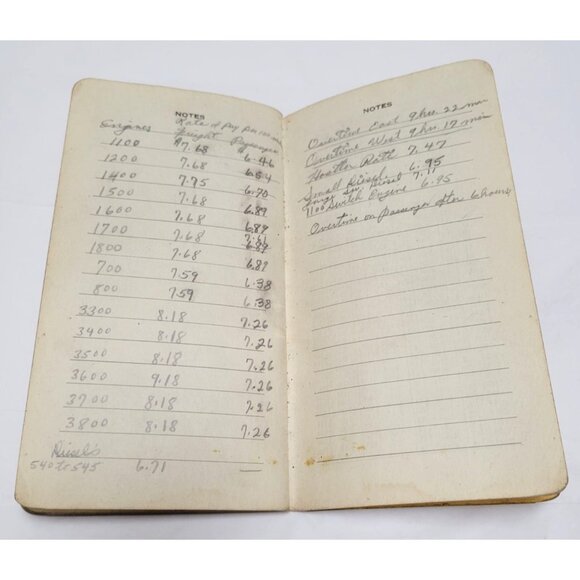 NOTES
Rate of Pay Per 100 miles
Engines Freight Passenger
1100 $7.68 6.46
1200 7.68 6.54
1400 7.75 6.70
1500 7.68 6.89
1600 7.68 6.89
1700 7.68 7.61
1800 7.68 6.89
700 7.59 6.38
800 7.59 6.38
3300 8.18 7.26
3400 8.18 7.26
3500 8.18 7.26
3600 9.18 7.26
3700 8.18 7.26
3800 8.18 7.26
Diesel's
540 to 545 6.71 —
NOTES
Overtime East 9 hrs. 22 min
Overtime West 9 hrs. 17 min
Hostler Rate 7.47
Small Diesel 6.95
Diesel 7.11
1100 Switch Engine 6.95
Overtime on Passenger after 6 hours